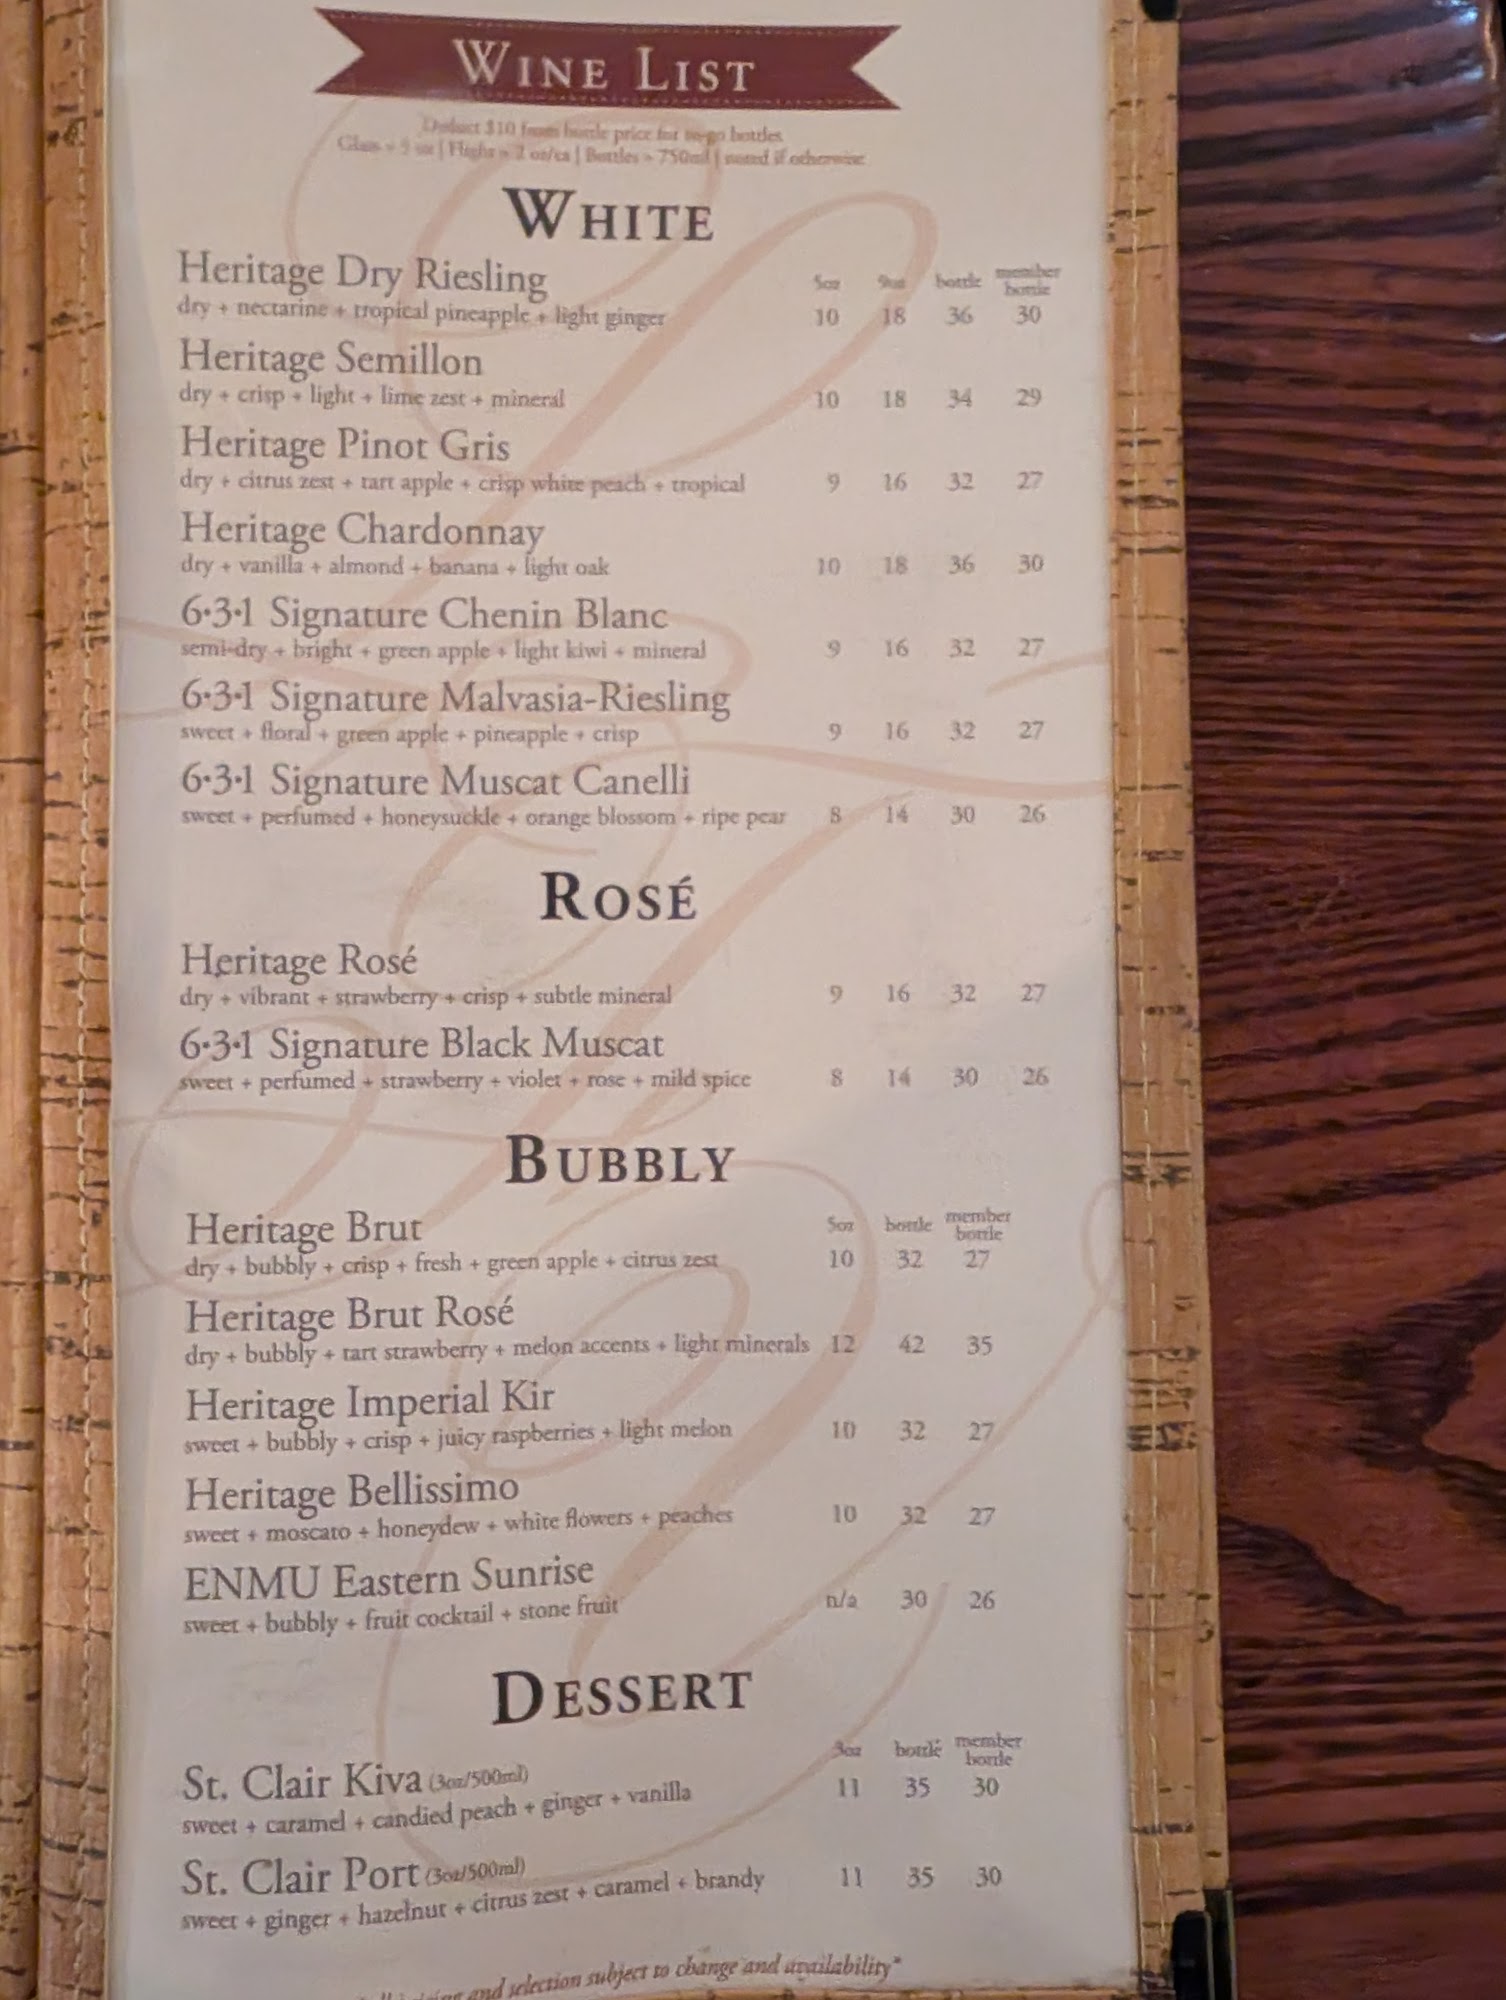 WINE LIST
Deduct $10 from bottle price for to-go bottles
Glass = 5 oz | Flight = 2 oz/ea | Bottles = 750ml | noted if otherwise
WHITE
Heritage Dry Riesling 5oz 9oz bottle member bottle
dry + nectarine + tropical pineapple + light ginger 10 18 36 30
Heritage Semillon
dry + crisp + light + lime zest + mineral 10 18 34 29
Heritage Pinot Gris
dry + citrus zest + tart apple + crisp white peach + tropical 9 16 32 27
Heritage Chardonnay
dry + vanilla + almond + banana + light oak 10 18 36 30
6•3•1 Signature Chenin Blanc
semi-dry + bright + green apple + light kiwi + mineral 9 16 32 27
6•3•1 Signature Malvasia-Riesling
sweet + floral + green apple + pineapple + crisp 9 16 32 27
6•3•1 Signature Muscat Canelli
sweet + perfumed + honeysuckle + orange blossom + ripe pear 8 14 30 26
ROSÉ
Heritage Rosé
dry + vibrant + strawberry + crisp + subtle mineral 9 16 32 27
6•3•1 Signature Black Muscat
sweet + perfumed + strawberry + violet + rose + mild spice 8 14 30 26
BUBBLY
Heritage Brut 5oz bottle member bottle
dry + bubbly + crisp + fresh + green apple + citrus zest 10 32 27
Heritage Brut Rosé
dry + bubbly + tart strawberry + melon accents + light minerals 12 42 35
Heritage Imperial Kir
sweet + bubbly + crisp + juicy raspberries + light melon 10 32 27
Heritage Bellissimo
sweet + moscato + honeydew + white flowers + peaches 10 32 27
ENMU Eastern Sunrise
sweet + bubbly + fruit cocktail + stone fruit n/a 30 26
DESSERT
3oz bottle member bottle
St. Clair Kiva (3oz/500ml) 11 35 30
sweet + caramel + candied peach + ginger + vanilla
St. Clair Port (3oz/500ml) 11 35 30
sweet + ginger + hazelnut + citrus zest + caramel + brandy
and selection subject to change and availability*